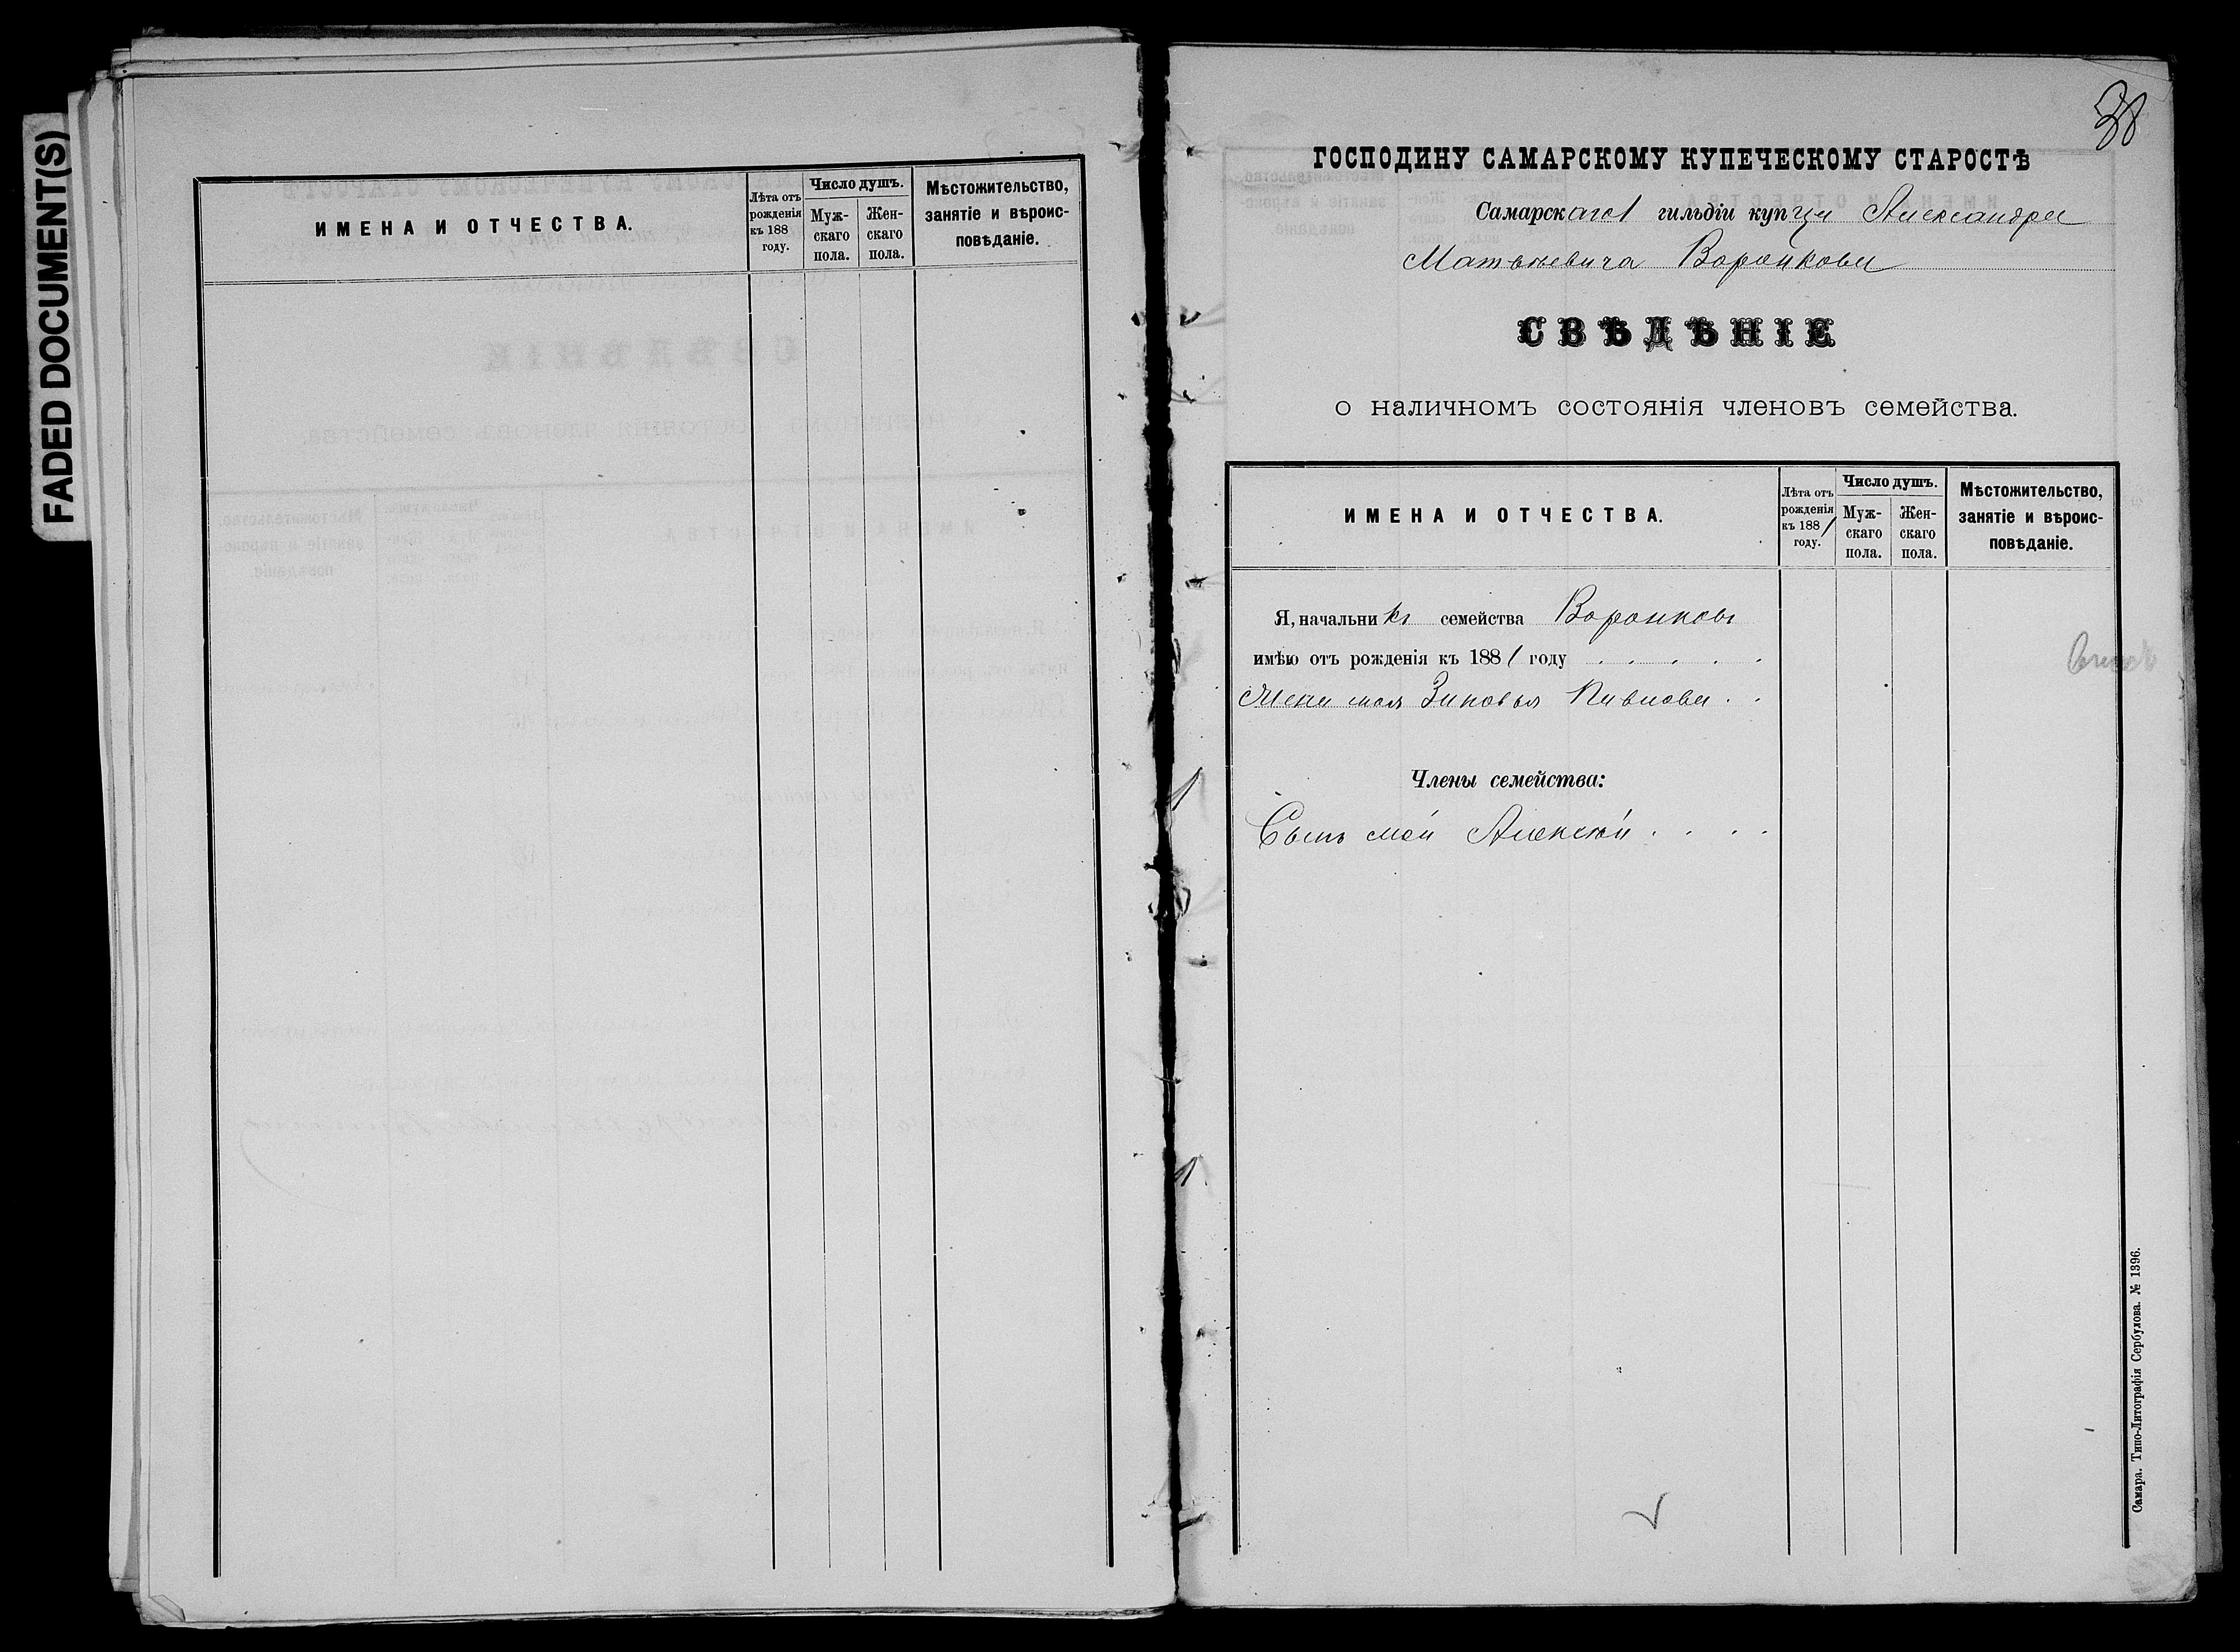 FADED DOCUMENT(S)
ИМЕНА И ОТЧЕСТВА.
Лѣта отъ рожденія къ 188 году.
Число душъ.
Муж-скаго пола.
Жен-скаго пола.
Мѣстожительство, занятіе и вѣроис-повѣданіе.
38
ГОСПОДИНУ САМАРСКОМУ КУПЕЧЕСКОМУ СТАРОСТѢ
Самарскаго 1 гильдіи купца Александра
Матвѣевича Воронкова
СВѢДѢНІЕ
о наличномъ состоянія членовъ семейства.
ИМЕНА И ОТЧЕСТВА.
Лѣта отъ рожденія къ 1881 году.
Число душъ.
Муж-скаго пола.
Жен-скаго пола.
Мѣстожительство, занятіе и вѣроис-повѣданіе.
Я, начальникъ семейства Воронковъ
имѣю отъ рожденія къ 1881 году . . . . .
Жена моя Зиновья Павлова . .
Члены семейства:
Сынъ мой Алексѣй . . . .
Самара. Типо-Литографія Сербулова. № 1396.